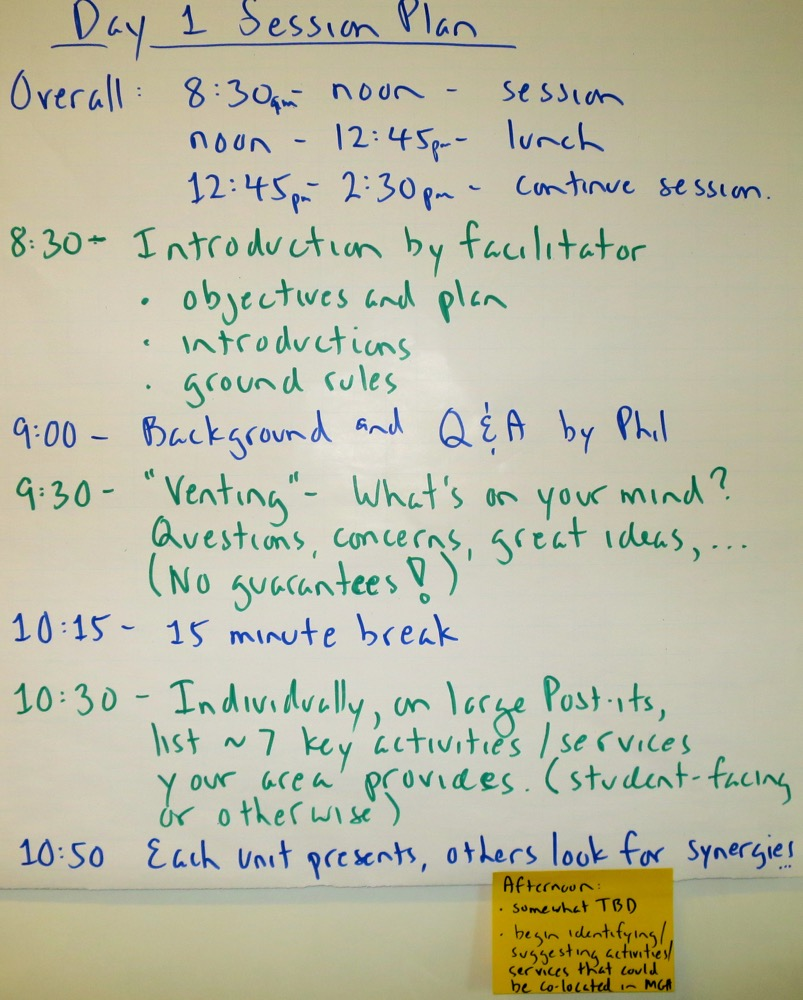 Day 1 Session Plan
Overall: 8:30am - noon - session
noon - 12:45pm - lunch
12:45pm - 2:30pm - continue session.
8:30 - Introduction by facilitator
• objectives and plan
• introductions
• ground rules
9:00 - Background and Q & A by Phil
9:30 - "Venting" - What's on your mind?
Questions, concerns, great ideas, ...
(No guarantees!)
10:15 - 15 minute break
10:30 - Individually, on large Post-its,
list ~ 7 key activities / services
your area provides. (student-facing
or otherwise)
10:50 Each unit presents, others look for synergies
Afternoon:
• somewhat TBD
• begin identifying/
suggesting activities/
services that could
be co-located in MCA